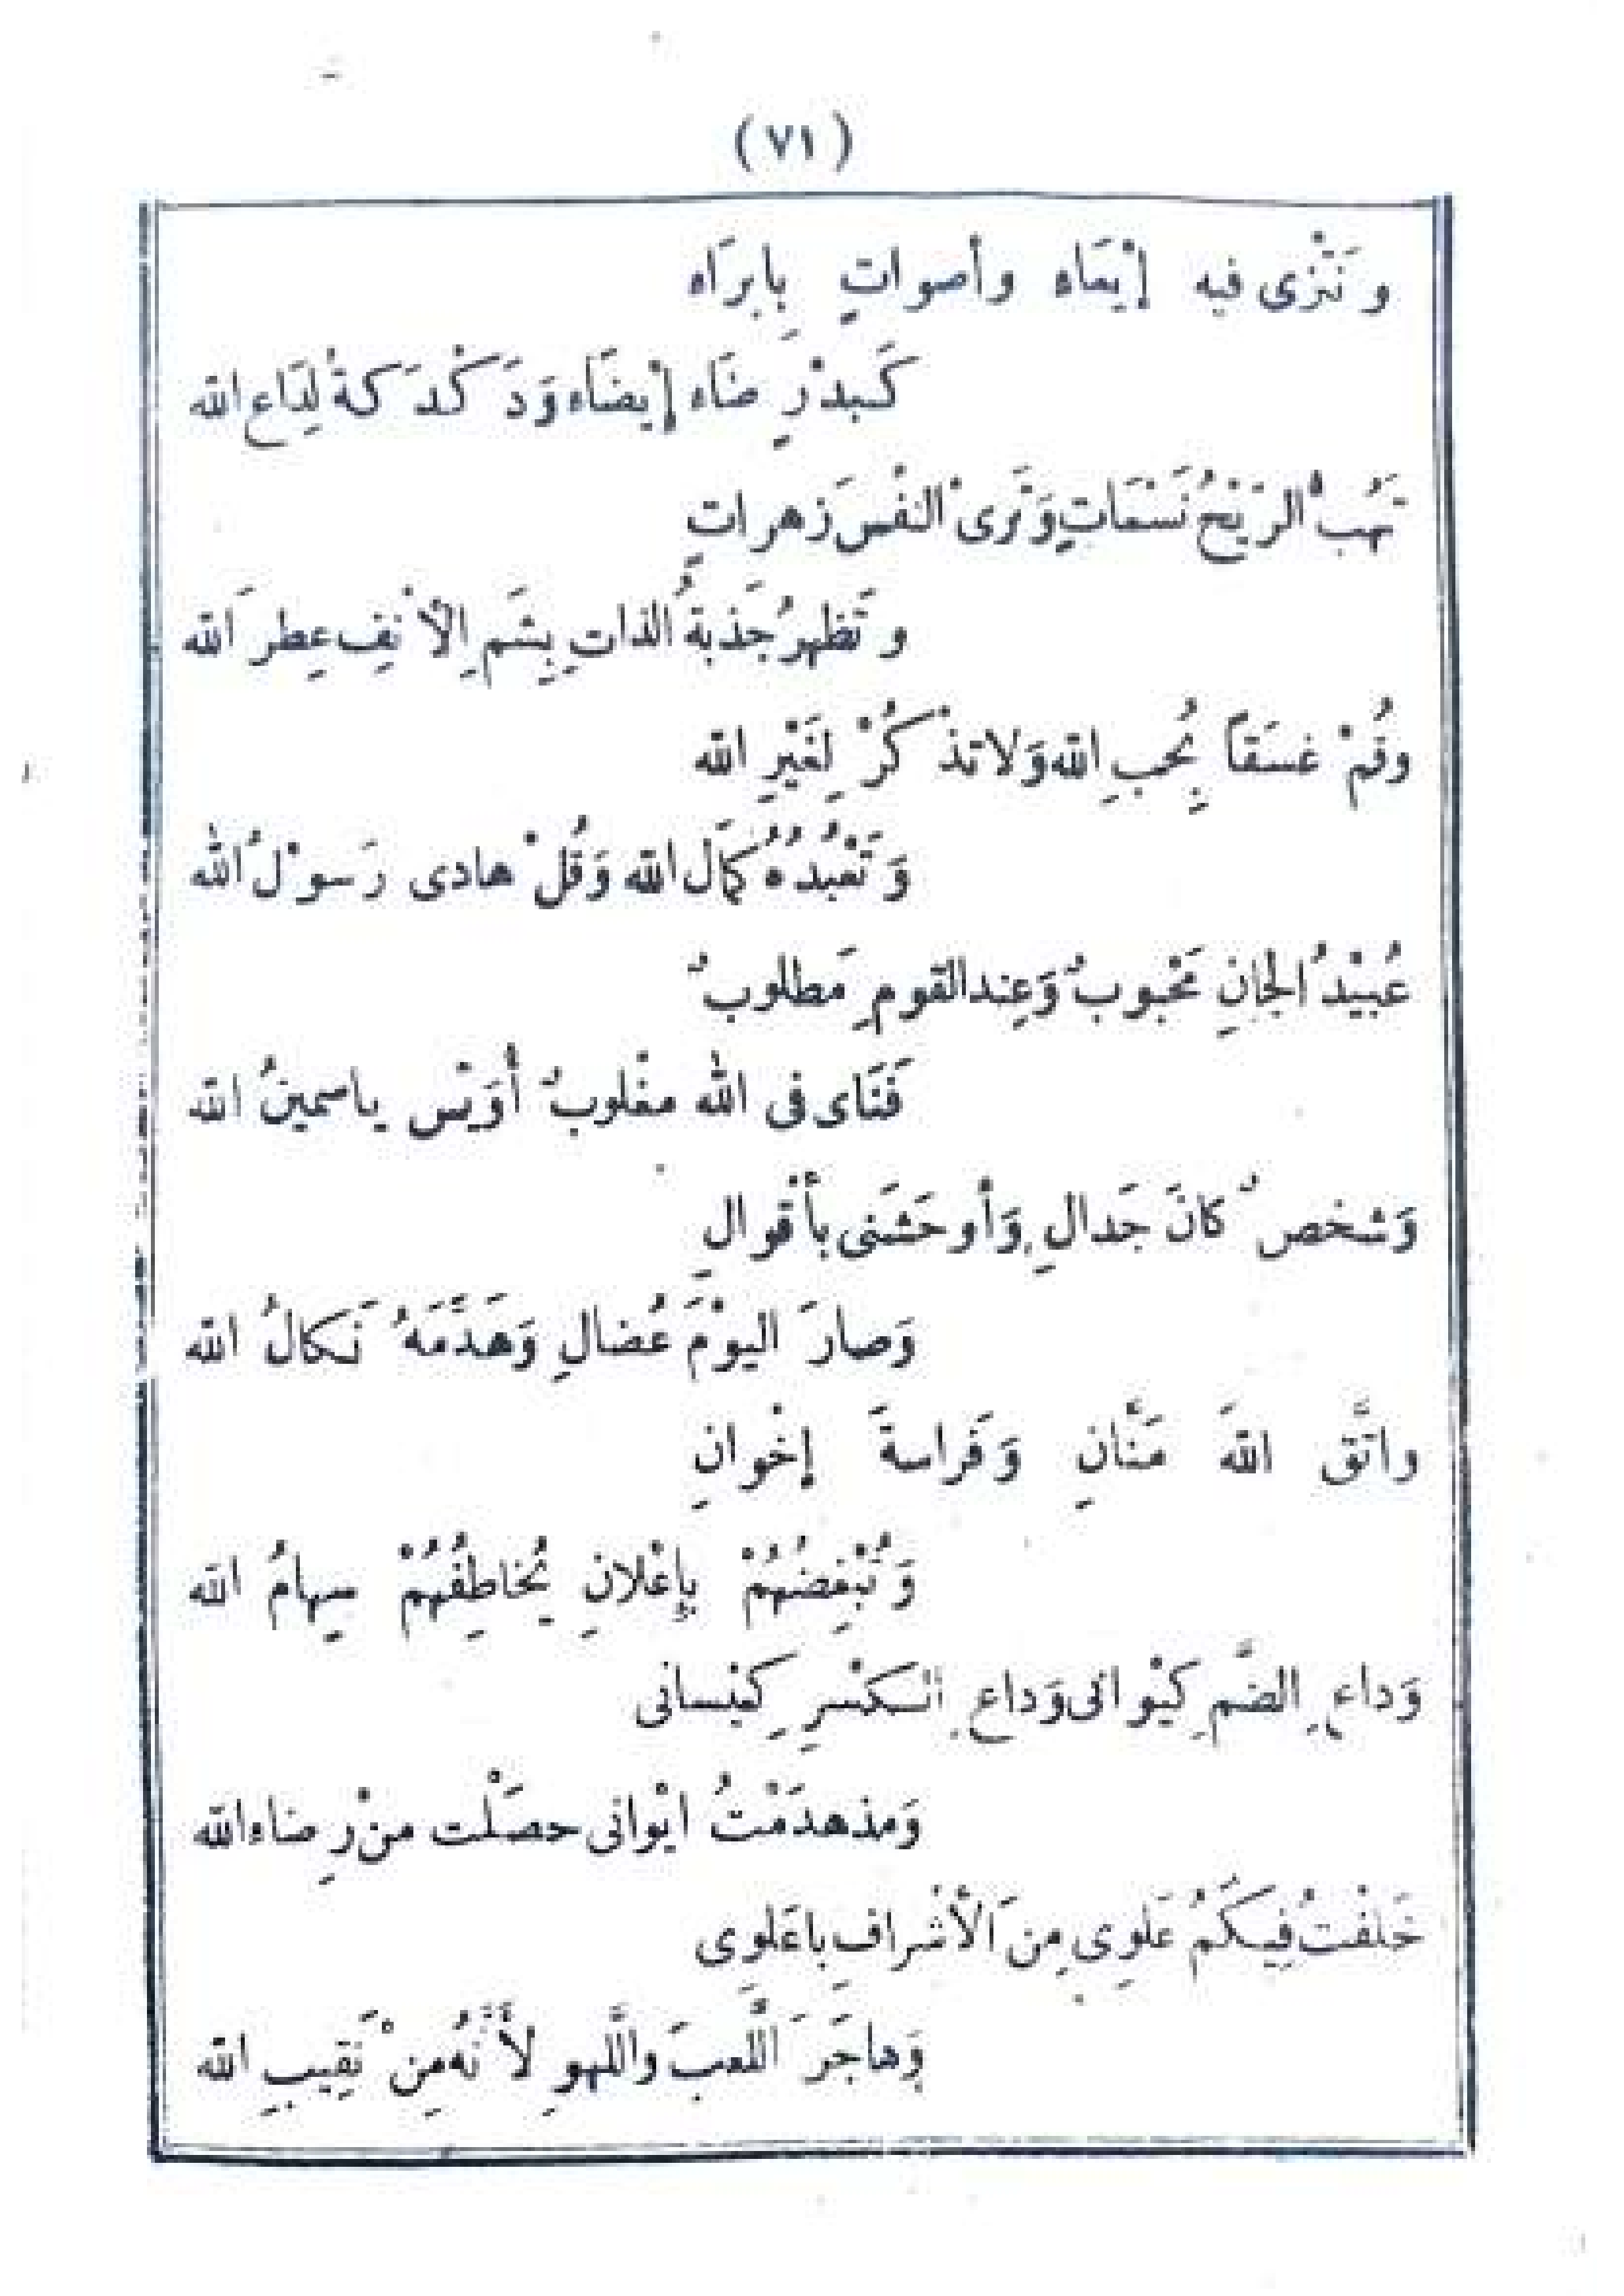 (٧١)
وَتَنْزى فيه إيْمَاه وأصواتٍ بِابرَاه
كَبدْرٍ ضَاء إيْضَاء وَدَكْدَكةُ لِدَاعِ الله
تَهُبُّ الرّيْحُ نَسْمَاتٍ وَتَرىْ النفْسَ زهراتٍ
وتَظهرُ جَذبةُ الذاتِ بِشَمِ الْأنفِ عِطرَ الله
وقُمْ غسَقاً بِحُبِ الله وَلاتذْكُرْ لِغَيْرِ الله
وَتَعْبُدُهُ كمَالُ الله وَقُلْ هادى رَسوْلُ الله
عُبيْدُ الجانِ مَحْبوبٌ وَعِند القومِ مَطلوبٌ
فَنَاى فى الله مغْلوبٌ أُوَيْس ياسمينُ الله
وَشخصٌ كانَ جَدالٍ وَأوحَشَنى بأقْوالِ
وَصارَ اليوْمَ عُضالِ وَهَدَّمَهُ نَكالُ الله
واتَّق اللهَ مَنَّانِ وَفَراسةَ إخْوانِ
وَتُبْغِضُهُمْ بِإعْلانِ يُخاطِفُهُمْ سِهامُ الله
وَداعِ الضَّمِ كيْوانى وَداعِ الكسْرِ كيْسانى
وَمذ هدَمْتُ ايْوانى حصَلْت منْ رِضاءالله
خَلفْتُ فِيكَمُ عَلوِى مِنَ الْأشْرافِ باعَلوِى
وَهاجَرَ اللَّعبَ واللَّهوِ لأَنَّهُ مِنْ نَقِيبِ الله